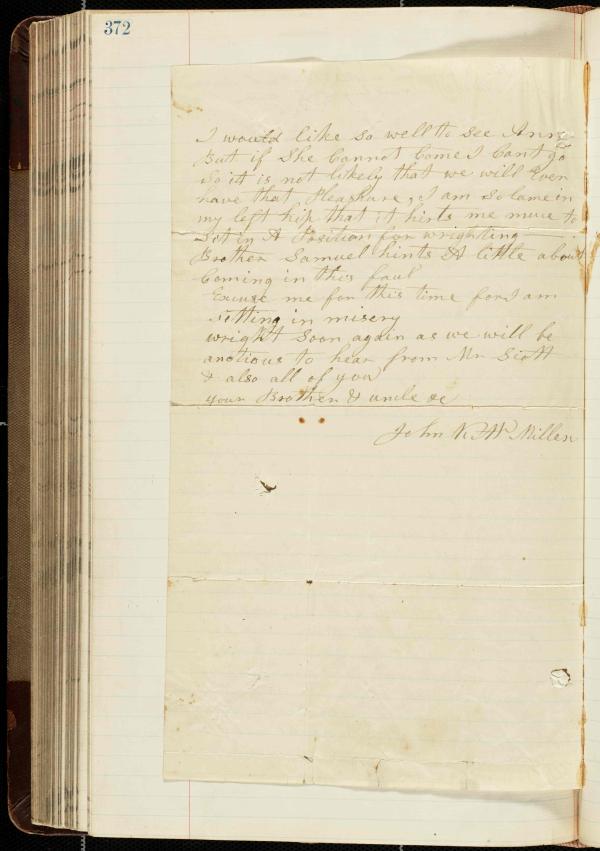 372
I would like so well to see Ann
But if She Cannot Come I Cant go
So it is not likely that we will Ever
have that Pleashure, I am so lame in
my left hip that it hirts me mutch to
Sit in A Position for wrighting
Brother Samuel hints A little about
Coming in this faul
Excuse me for this time for I am
sitting in misery
wright Soon again as we will be
anctious to hear from Mr Scott
& also all of you
your Brother & uncle &c
John Millen